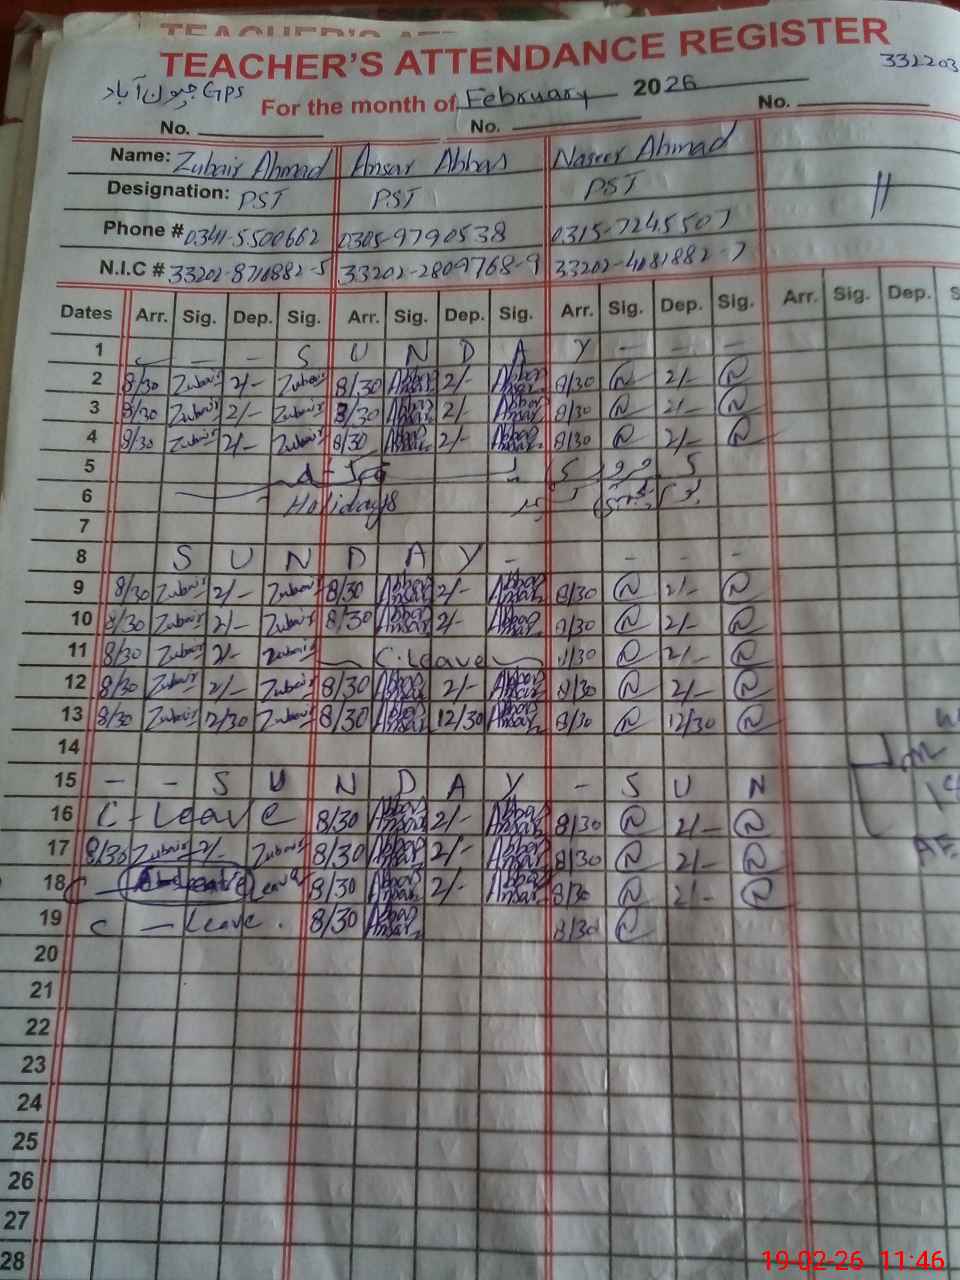 TEACHER'S ATT
TEACHER'S ATTENDANCE REGISTER
332203
GPS جیون آباد
For the month of February 2026
No. No. No.
Name: Zubair Ahmad Ansar Abbas Naseer Ahmad
Designation: PST PST PST
Phone # 0341-5500662 0305-9790538 0315-7245507
N.I.C # 33202-8710882-5 33202-2809768-9 33202-4081882-7
Dates Arr. Sig. Dep. Sig. Arr. Sig. Dep. Sig. Arr. Sig. Dep. Sig. Arr. Sig. Dep. S
1 - - S U N D A Y - - -
2 8/30 Zubair 2/- Zubair 8/30 Abbas Ansar 2/- Abbas Ansar 8/30 N 2/- N
3 8/30 Zubair 2/- Zubair 8/30 Abbas Ansar 2/- Abbas Ansar 8/30 N 2/- N
4 8/30 Zubair 2/- Zubair 8/30 Abbas Ansar 2/- Abbas Ansar 8/30 N 2/- N
5
6 Holidays
7
8 S U N D A Y - - - -
9 8/30 Zubair 2/- Zubair 8/30 Abbas Ansar 2/- Abbas Ansar 8/30 N 2/- N
10 8/30 Zubair 2/- Zubair 8/30 Abbas Ansar 2/- Abbas Ansar 8/30 N 2/- N
11 8/30 Zubair 2/- Zubair C.Leave 8/30 N 2/- N
12 8/30 Zubair 2/- Zubair 8/30 Abbas Ansar 2/- Abbas Ansar 8/30 N 2/- N
13 8/30 Zubair 12/30 Zubair 8/30 Abbas Ansar 12/30 Abbas Ansar 8/30 N 12/30 N
14
15 - - S U N D A Y - S U N
16 C - Leave 8/30 Abbas Ansar 2/- Abbas Ansar 8/30 N 2/- N
17 8/30 Zubair 2/- Zubair 8/30 Abbas Ansar 2/- Abbas Ansar 8/30 N 2/- N
18 C - Leave 8/30 Abbas Ansar 2/- Abbas Ansar 8/30 N 2/- N
19 C - Leave . 8/30 Abbas Ansar 8/30 N
20
21
22
23
24
25
26
27
28
19-02-26 11:46